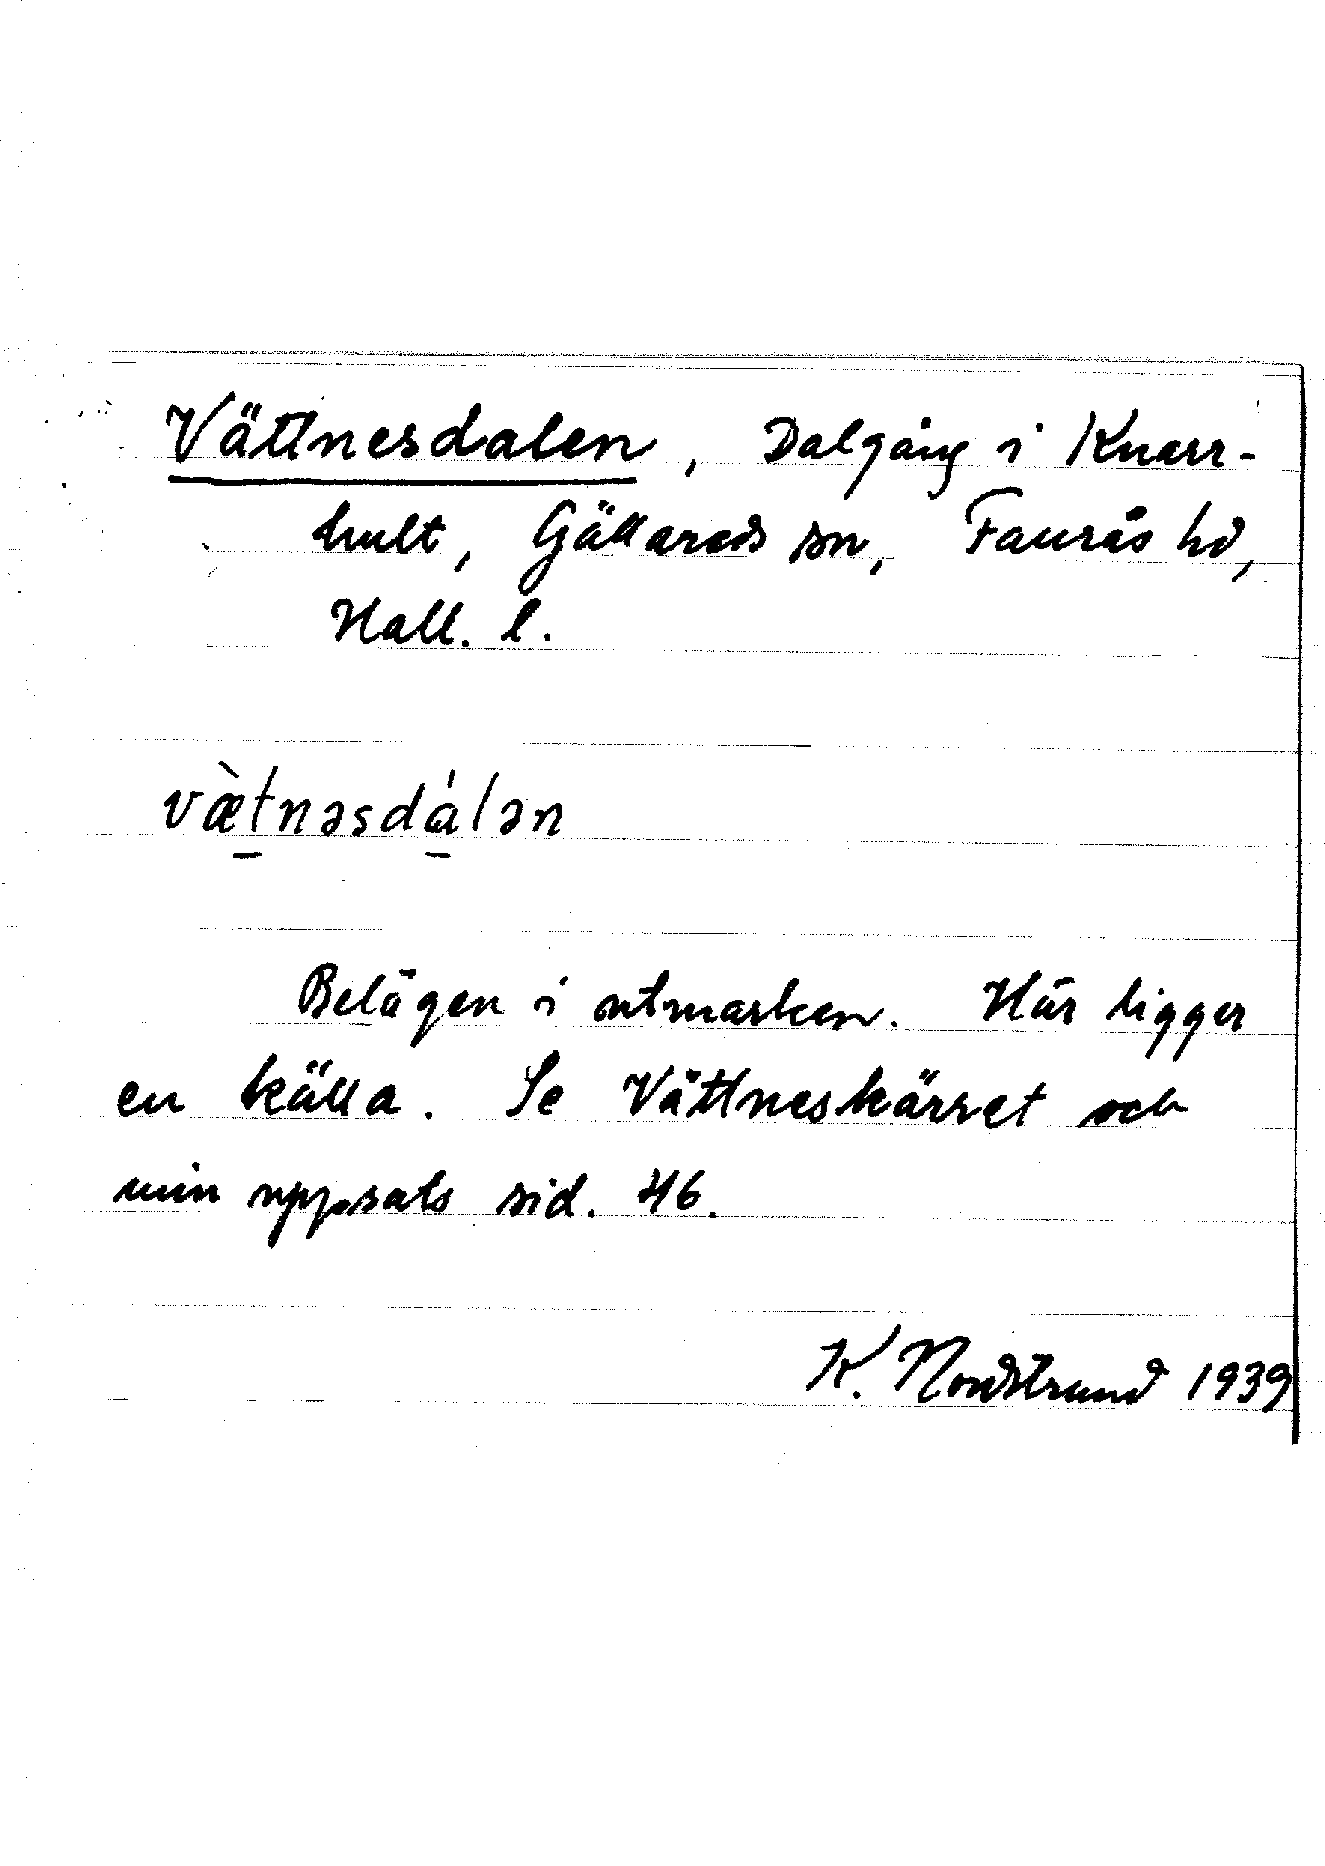 Vättnesdalen, Dalgång i Knarr-
hult, Gällareds sn, Faurås hd,
Hall. l.
væ̀tnəsdálən
Belägen i utmarken. Här ligger
en källa. Se Vättneskärret och
min uppsats sid. 46.
K. Nordstrand 1939